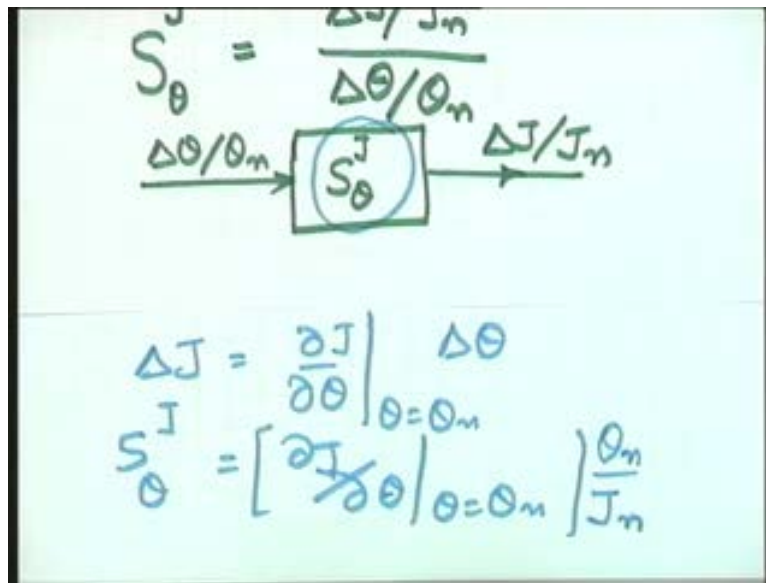 S_θ^J = ΔJ/J_n / Δθ/θ_n
Δθ/θ_n S_θ^J ΔJ/J_n
ΔJ = ∂J/∂θ |_θ=θ_n Δθ
S_θ^J = [ ∂J/∂θ |_θ=θ_n ] θ_n/J_n